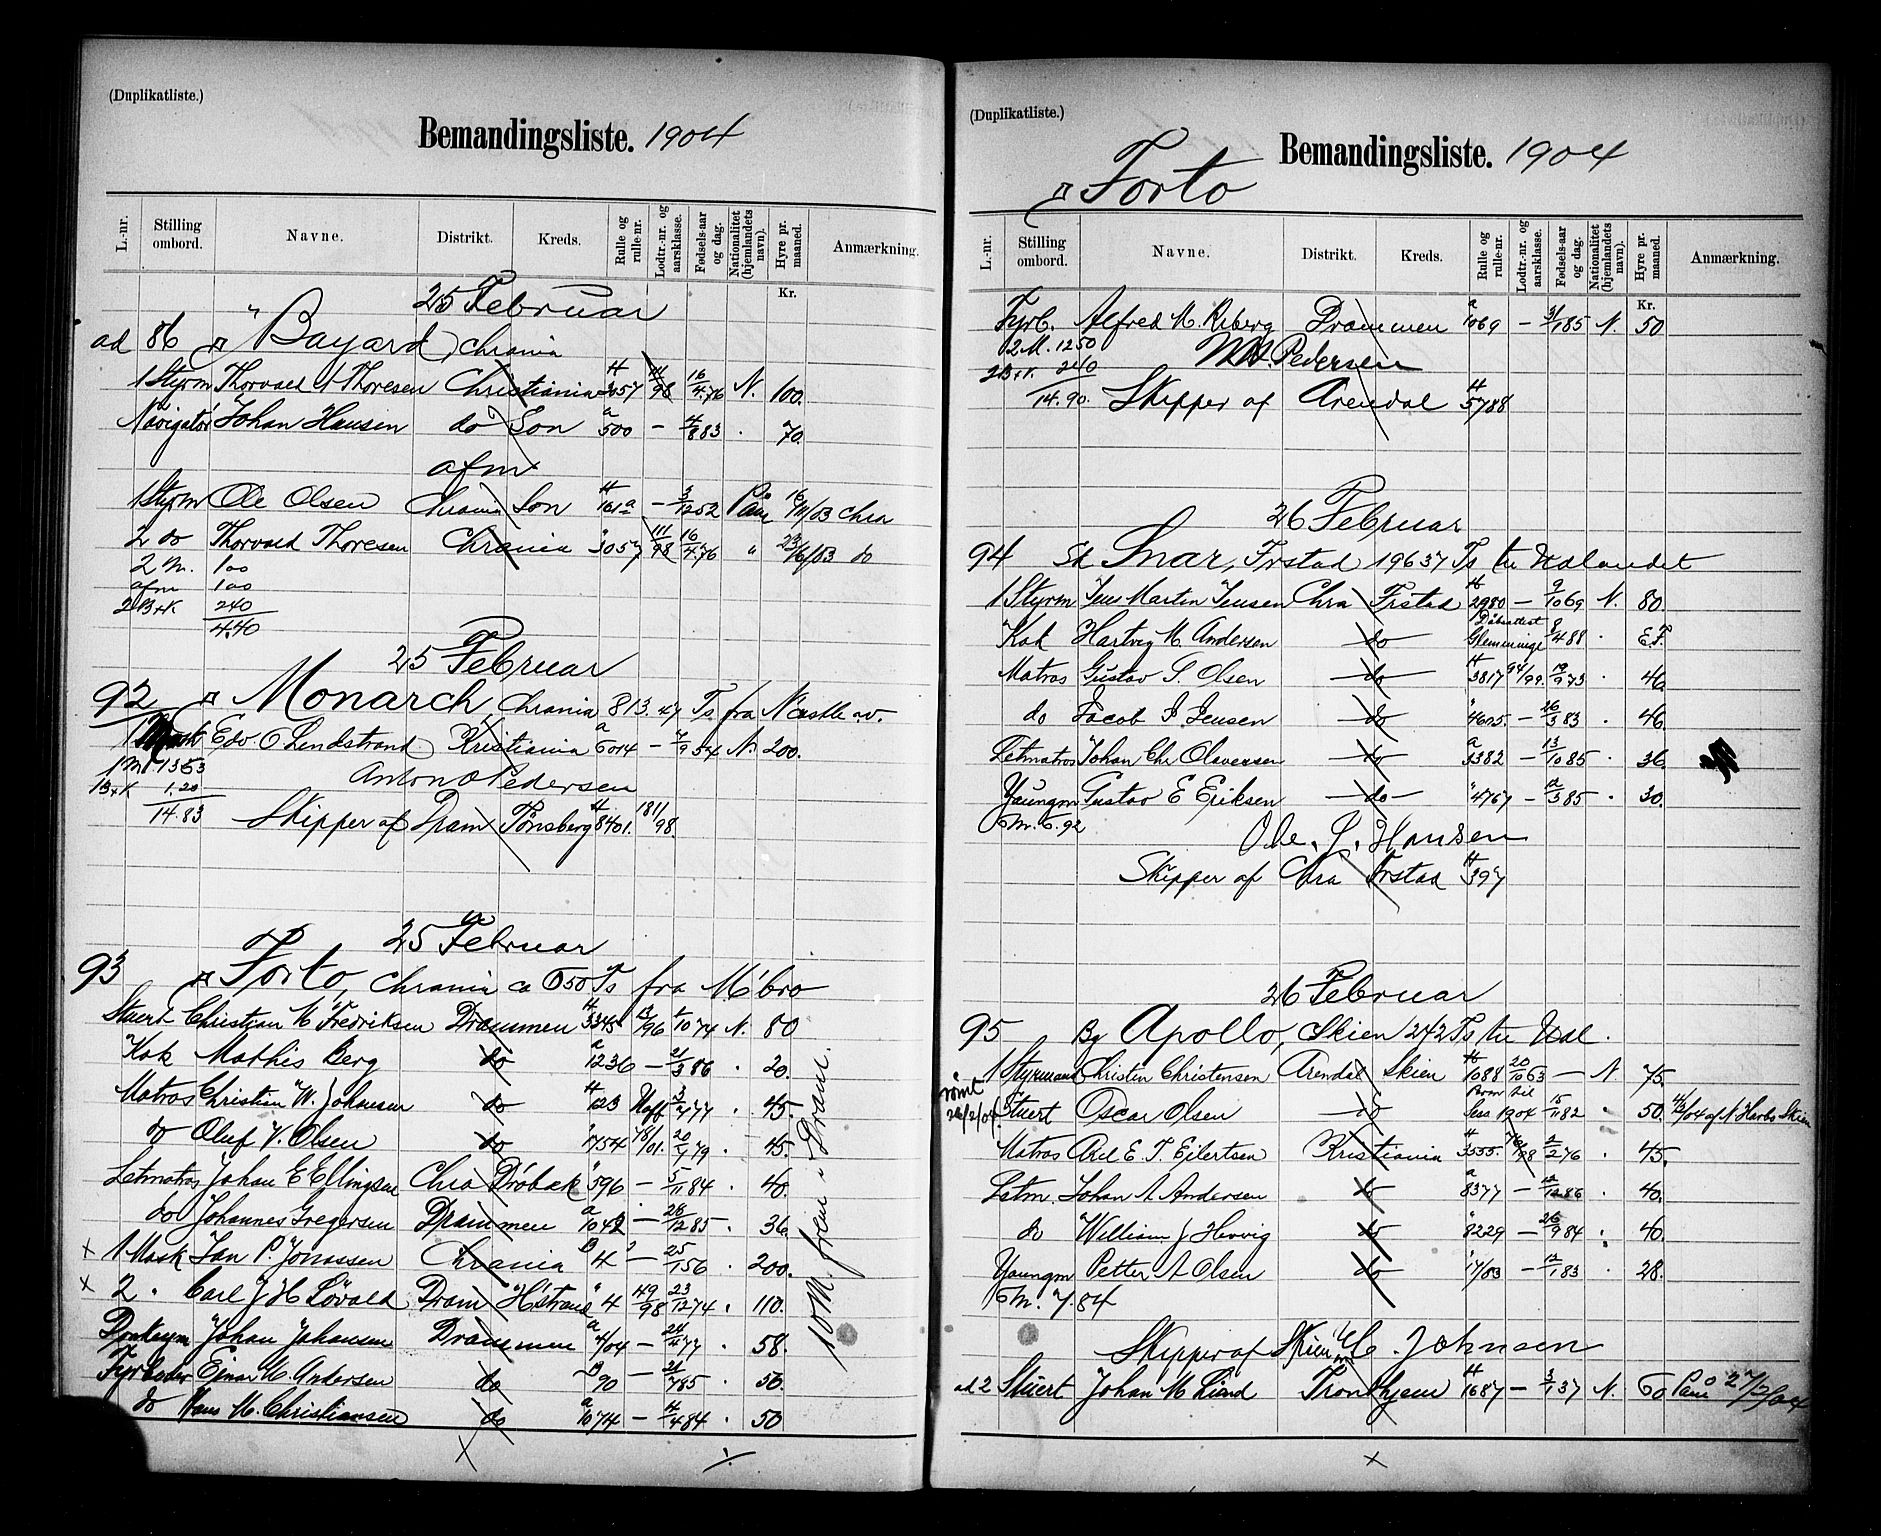 (Duplikatliste.)
Bemandingsliste. 1904
L.-nr. Stilling ombord. Navne. Distrikt. Kreds. Rulle og rulle-nr. Lodtr.-nr. og aarsklasse. Fødsels-aar og dag. Nationalitet (hjemlandets navn). Hyre pr. maaned. Anmærkning.
Kr.
25 Februar
ad 86 Bayard, Chrania
1 Styrm Thorvald A Thoresen Christiania H 3057 111/98 16/4.76 N. 100.
Navigatör Johan Hansen do Son a 500 – 4/8 83 . 70.
afm
1 Styrm Ole Olsen Chrania Son H 161a – 3/12 52 Paam 16/11/03 Chra
2 do Thorvald Thoresen Chrania " 3057 111/98 16/4.76 " 23/6/03 do
2 M. 100
afm 100
2 B+K 240
4.40
25 Februar
92 Monarch Chrania 813.47 Ts fra NCastle
1 Mask Edv O Lendstrand Kristiania a 6014 – 4/9 54 N. 200.
1 M. 1363
1 B+K 1.20
14.83
Anton O Pedersen
Skipper af Dram Tønsberg H 8401. 181/98.
25 Februar
93 Forto, Chrania ca 650 Ts fra M'bro
Stuert Christian M Fredriksen Drammen H 3345 13/96 1/10 74 N. 80
Kok Mathis Berg do a 1236 – 21/3 86 . 20.
Matros Christian W. Johansen do H 123 Uaff 3/7 77 . 45.
do Oluf V. Olsen do " 1754 78/01. 20/7 79 . 45.
Letmatros Johan E Ellingsen Chra Dröbak " 596 – 5/11 84 . 40.
do Johannes Gregersen Drammen a 1042 – 28/12 85 . 36.
x 1 Mask Jan P. Jonassen Chrania D 4 – 25/1 56 . 200.
x 2 . Carl J H Lövald Dram H'strand " 4 49/98 23/12 74 . 110.
Donkeym Johan Johansen Drammen a 4/04 – 24/4 77 . 58.
Fyrböder Ejnar M. Andersen do D 90 – 21/7 85 . 50.
do Hans M. Christiansen do a 1074 – 4/4 84 . 50
10 M. frem i Dram.
(Duplikatliste.)
Bemandingsliste. 1904
Forto
L.-nr. Stilling ombord. Navne. Distrikt. Kreds. Rulle og rulle-nr. Lodtr.-nr. og aarsklasse. Fødsels-aar og dag. Nationalitet (hjemlandets navn). Hyre pr. maaned. Anmærkning.
Kr.
Fyrb. Alfred M. Riberg Drammen a 1069 – 31/1 85 N. 50
12 M. 1250
2 B+K. 240
14.90.
Pedersen
Skipper af Arendal H 5788
26 Februar
94 Sk Snar, Frstad 196 37 Ts til Udlandet
1 Styrm Jens Martin Jensen Chra Frstad H 2980 – 9/10 69 N. 80
Kok Hartvig M. Andersen do Dåbsattest Glemminge 8/4 88 . E.F.
Matros Gustav S. Olsen do H 3817 94/99. 19/9 73 . 46
do Jacob S. Jensen do " 4605 – 26/3 83 . 46
Letmatros Johan Chr Olavesen do a 3382 – 13/10 85 . 36.
Youngm Gustav E Eriksen do " 4767 – 12/3 85 . 30.
6 M. 6.92
Ole. J. Hansen
Skipper af Chra Frstad H 397
26 Februar
95 Bg Apollo, Skien 242 Ts til Udl.
1 Styrmand Christen Christensen Arendal Skien H 1088 20/10 63 — N. 75
rømt 26/2/04. Stuert Oscar Olsen do Sess 1904 15/11 82 . 50.
Matros Axel E. T. Eilertsen Kristiania H 3555. 76/98 2/2 76 . 45.
Letm. Johan A Andersen do a 8377 – 12/12 86 . 40.
do William J Hervig do " 8229 – 26/9 84 . 40.
Youngm Petter A Olsen do " 17/03 – 12/1 83 . 28.
6 M. 7.84
Skipper af Skien Johnsen
ad 2 Stuert Johan M Lund Trondhjem H 1687 – 3/1 37 N. 60 Paam 27/2/04